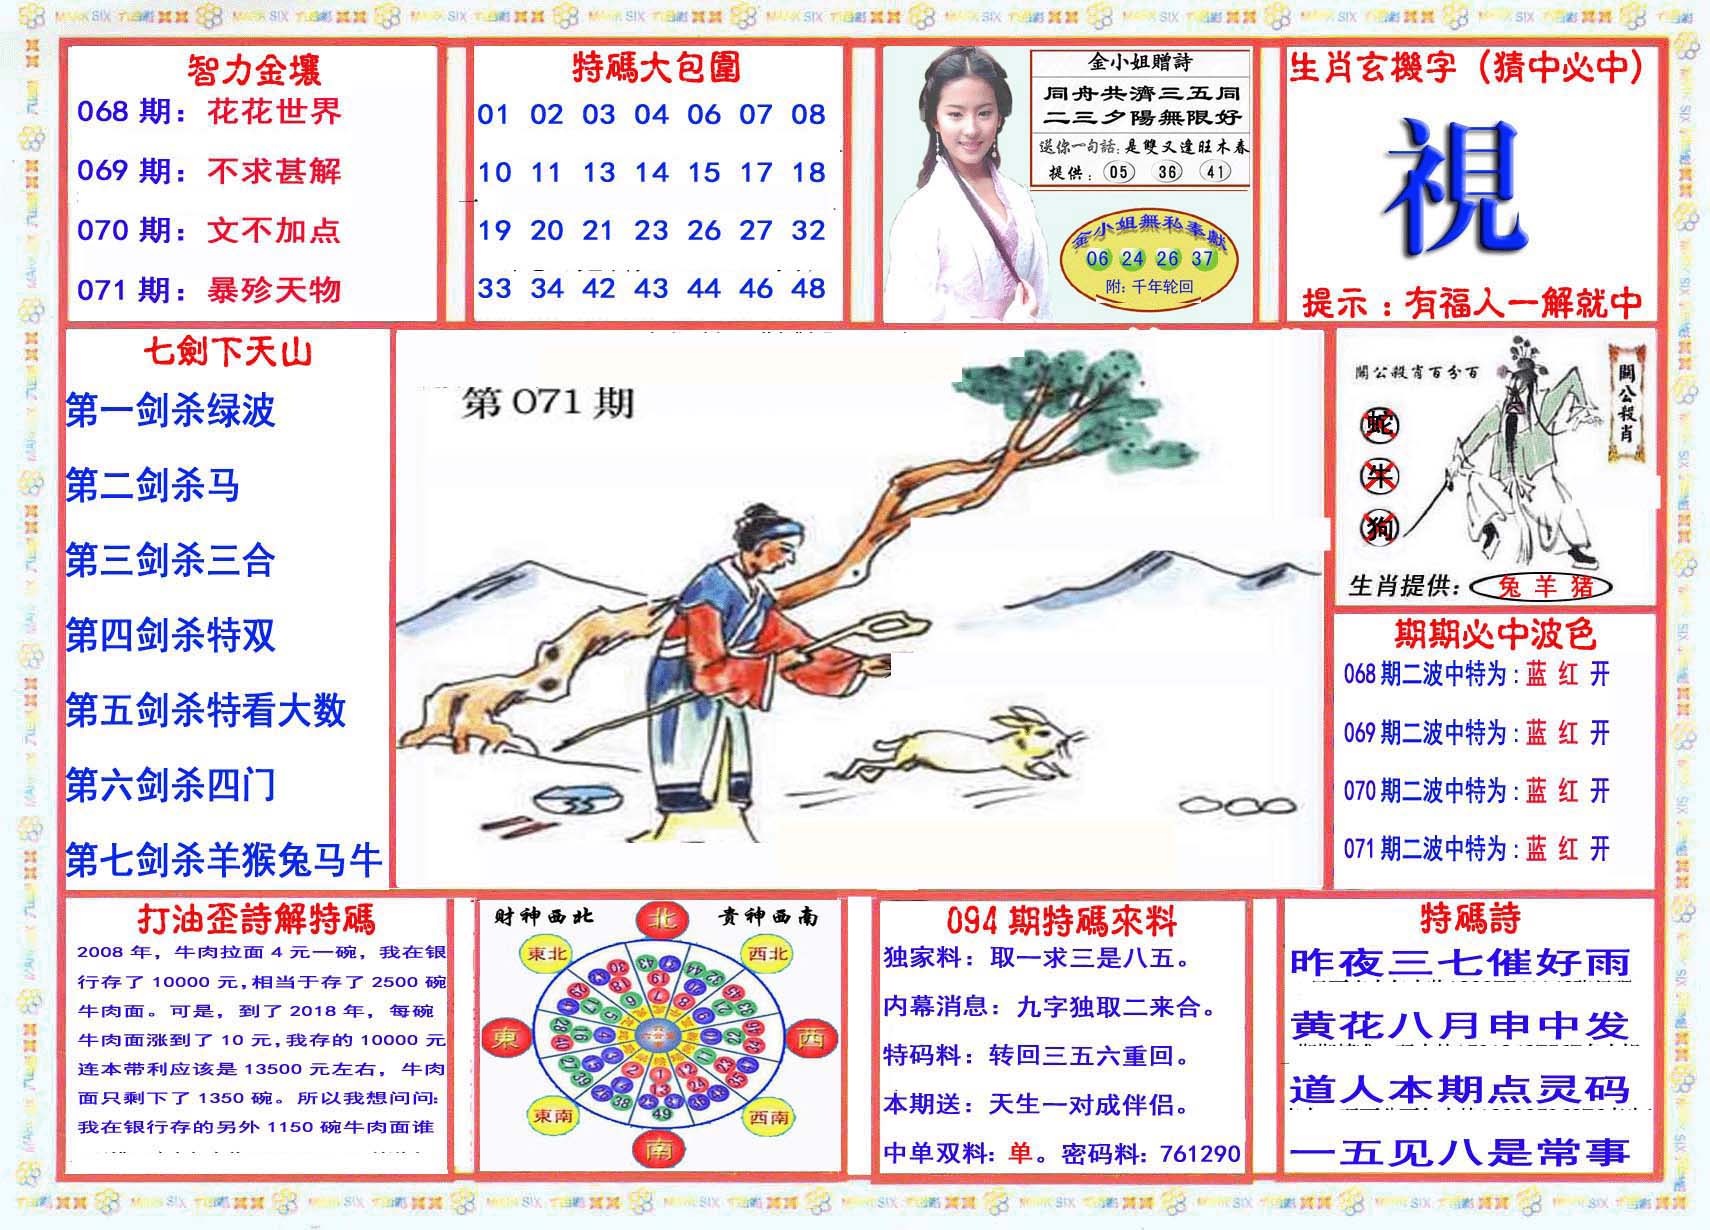 智力金壤
068 期：花花世界
069 期：不求甚解
070 期：文不加点
071 期：暴殄天物
特碼大包圍
01 02 03 04 06 07 08
10 11 13 14 15 17 18
19 20 21 23 26 27 32
33 34 42 43 44 46 48
金小姐贈詩
同舟共濟三五同
二三夕陽無限好
送你一句話：是雙又逢旺木春
提供：05 36 41
金小姐無私奉獻
06 24 26 37
附：千年轮回
生肖玄機字（猜中必中）
視
提示：有福人一解就中
七劍下天山
第一剑杀绿波
第二剑杀马
第三剑杀三合
第四剑杀特双
第五剑杀特看大数
第六剑杀四门
第七剑杀羊猴兔马牛
第 071 期
關公殺肖百分百
關公殺肖
蛇
牛
狗
生肖提供：兔 羊 猪
期期必中波色
068 期二波中特为：蓝 红 开
069 期二波中特为：蓝 红 开
070 期二波中特为：蓝 红 开
071 期二波中特为：蓝 红 开
打油歪詩解特碼
2008 年，牛肉拉面 4 元一碗，我在银
行存了 10000 元，相当于存了 2500 碗
牛肉面。可是，到了 2018 年，每碗
牛肉面涨到了 10 元，我存的 10000 元
连本带利应该是 13500 元左右，牛肉
面只剩下了 1350 碗。所以我想问问：
我在银行存的另外 1150 碗牛肉面谁
財神西北
貴神西南
北
東北
西北
東
西
東南
西南
南
094 期特碼來料
独家料：取一求三是八五。
内幕消息：九字独取二来合。
特码料：转回三五六重回。
本期送：天生一对成伴侣。
中单双料：单。密码料：761290
特碼詩
昨夜三七催好雨
黄花八月申中发
道人本期点灵码
一五见八是常事